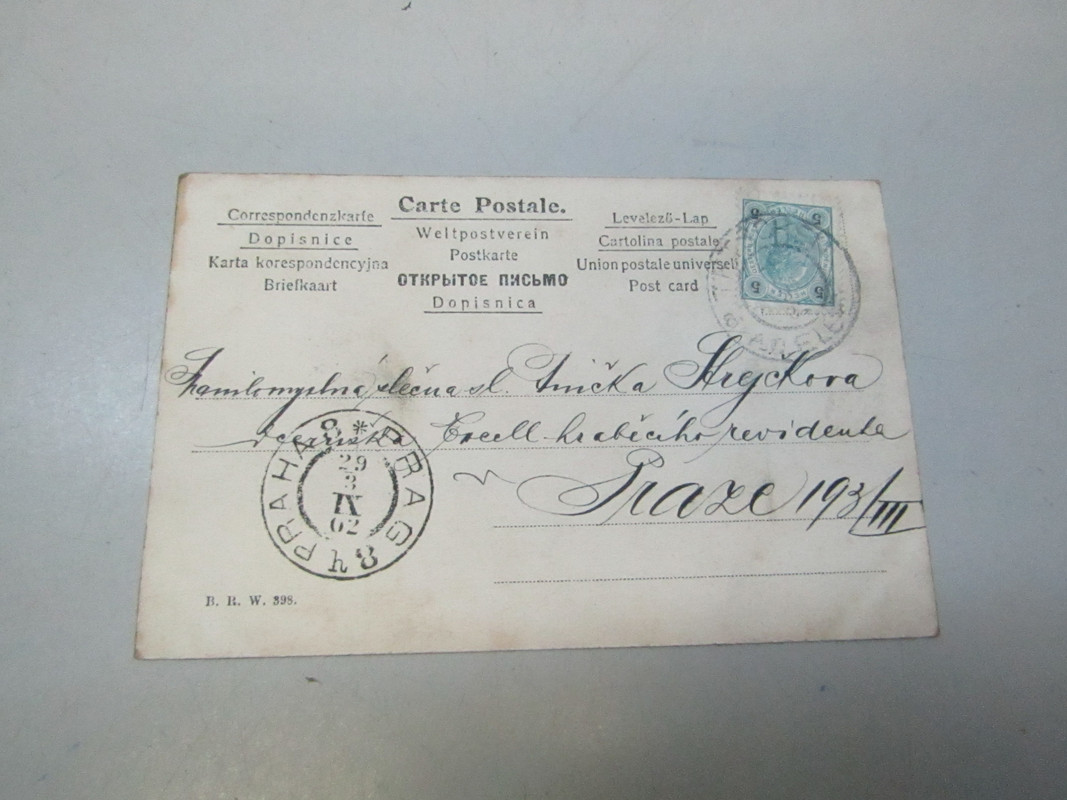 Carte Postale.
Correspondenzkarte
Dopisnice
Karta korespondencyjna
Briefkaart
Weltpostverein
Postkarte
ОТКРЫТОЕ ПИСЬМО
Dopisnica
Levelező-Lap
Cartolina postale
Union postale universell
Post card
5 5
5 5
slečna sl. Anička Strejčkova
hraběcího revidenta
Praze 193/III
PRAHA 8 * PRAG 8
29
3
IX
02
B. R. W. 398.